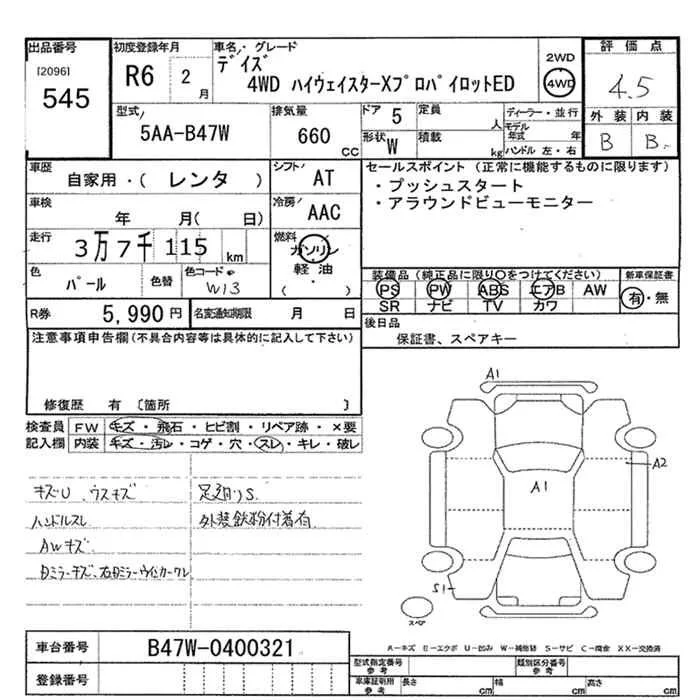 出品番号
[2096]
545
初度登録年月
R6 2月
車名・グレード
デイズ
4WD ハイウェイスターXプロパイロットED
2WD
4WD
評価点
4.5
外装 内装
B B
型式
5AA-B47W
排気量
660 CC
ドア 5
形状 W
定員 人
積載 kg
ディーラー・並行
モデル年式 年
ハンドル 左・右
車歴
自家用・( レンタ )
シフト
AT
車検
年 月( 日)
冷房
AAC
走行
3万7千115 km
燃料
ガソリン
軽油
( )
色
パール
色替
色コード
W13
R券 5,990円
名変通知期限 月 日
セールスポイント (正常に機能するものに限ります)
・プッシュスタート
・アラウンドビューモニター
装備品 (純正品に限り○をつけてください)
PS PW ABS エアB AW
SR ナビ TV カワ
新車保証書
有・無
後日品
保証書、スペアキー
注意事項申告欄(不具合内容等は具体的に記入して下さい)
修復歴 有 〔箇所 〕
検査員記入欄
FW キズ・飛石・ヒビ割・リペア跡・×要
内装 キズ・汚レ・コゲ・穴・スレ・キレ・破レ
キズU、ウスキズ
ハンドルスレ
AWキズ
足廻りS
外装鉄粉付着有
A1
A1
A2
S1
スペア
車台番号 B47W-0400321
登録番号
A-キズ E-エクボ U-凹み W-補修跡 S-サビ C-腐食 XX-交換済
型式指定番号 参考
類別区分番号 参考
車庫証明用 参考
長さ cm 幅 cm 高さ cm